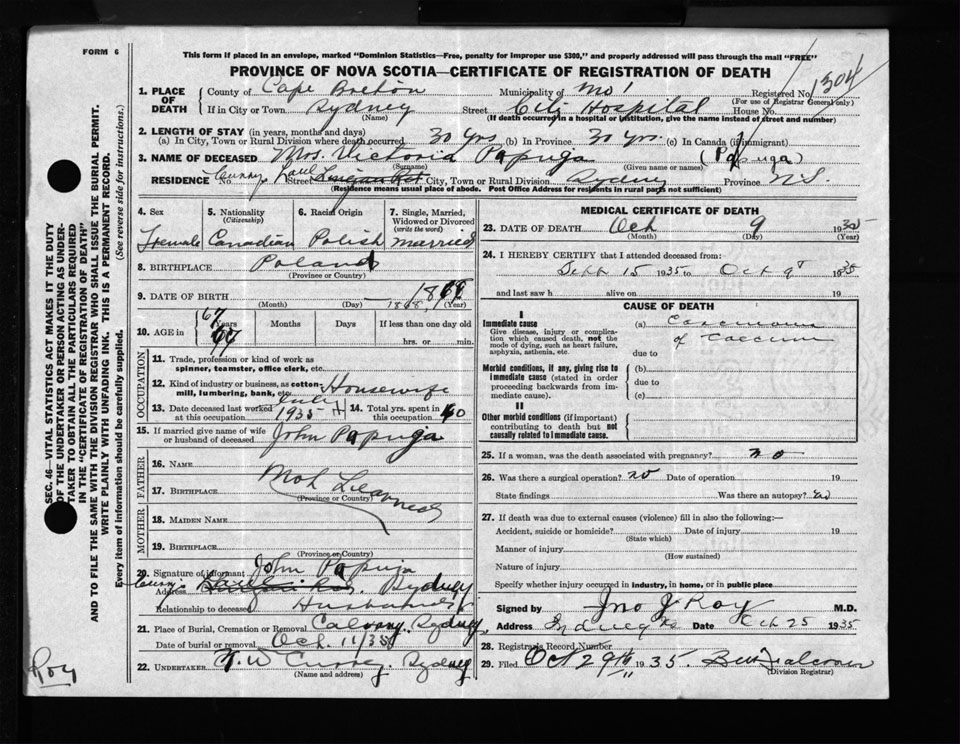 FORM 6
This form if placed in an envelope, marked "Dominion Statistics—Free, penalty for improper use $300," and properly addressed will pass through the mail "FREE"
PROVINCE OF NOVA SCOTIA—CERTIFICATE OF REGISTRATION OF DEATH
1304
1. PLACE OF DEATH
County of Cape Breton Municipality of Registered No.
(For use of Registrar General only)
If in City or Town Sydney Street City Hospital House No.
(Name) (If death occurred in a hospital or institution, give the name instead of street and number)
2. LENGTH OF STAY (in years, months and days)
(a) In City, Town or Rural Division where death occurred 30 yrs. (b) In Province 30 yrs. (c) In Canada (if immigrant)
3. NAME OF DECEASED Mrs. Victoria Papuga (Papuga)
(Surname) (Given name or names)
RESIDENCE No. Street City, Town or Rural Division Sydney Province N.S.
(Residence means usual place of abode. Post Office Address for residents in rural parts not sufficient)
SEC. 46—VITAL STATISTICS ACT MAKES IT THE DUTY
OF THE UNDERTAKER OR PERSON ACTING AS UNDER-
TAKER TO OBTAIN ALL THE PARTICULARS REQUIRED
IN THE "CERTIFICATE OF REGISTRATION OF DEATH"
AND TO FILE THE SAME WITH THE DIVISION REGISTRAR WHO SHALL ISSUE THE BURIAL PERMIT.
WRITE PLAINLY WITH UNFADING INK. THIS IS A PERMANENT RECORD.
Every item of information should be carefully supplied. (See reverse side for instructions.)
4. Sex 5. Nationality 6. Racial Origin 7. Single, Married,
(Citizenship) Widowed or Divorced
(write the word)
Female Canadian Polish married
8. BIRTHPLACE Poland
(Province or Country)
9. DATE OF BIRTH 1868
(Month) (Day) (Year)
10. AGE in 67 Years Months Days If less than one day old
hrs. or min.
OCCUPATION
11. Trade, profession or kind of work as
spinner, teamster, office clerk, etc.
12. Kind of industry or business, as cotton-
mill, lumbering, bank, etc. Housewife
13. Date deceased last worked July 1935 14. Total yrs. spent in 40
at this occupation this occupation
15. If married give name of wife
or husband of deceased John Papuga
FATHER
16. NAME
17. BIRTHPLACE Not Learned
(Province or Country)
MOTHER
18. MAIDEN NAME
19. BIRTHPLACE
(Province or Country)
20. Signature of informant John Papuga
Address Sydney
Relationship to deceased Husband
21. Place of Burial, Cremation or Removal Calvary, Sydney
Date of burial or removal Oct. 11/35
22. UNDERTAKER Sydney
(Name and address)
Roy
MEDICAL CERTIFICATE OF DEATH
23. DATE OF DEATH Oct 9 1935
(Month) (Day) (Year)
24. I HEREBY CERTIFY that I attended deceased from:
Sept 15 1935 to Oct 9 1935
and last saw h alive on 19
CAUSE OF DEATH
I
Immediate cause
Give disease, injury or complica-
tion which caused death, not the
mode of dying, such as heart failure,
asphyxia, asthenia, etc.
(a) Carcinoma of Caecum
due to
Morbid conditions, if any, giving rise to
immediate cause (stated in order
proceeding backwards from im-
mediate cause).
(b)
due to
(c)
II
Other morbid conditions (if important)
contributing to death but not
causally related to immediate cause.
25. If a woman, was the death associated with pregnancy? no
26. Was there a surgical operation? no Date of operation 19
State findings Was there an autopsy? no
27. If death was due to external causes (violence) fill in also the following:—
Accident, suicide or homicide? Date of injury 19
(State which)
Manner of injury
(How sustained)
Nature of injury
Specify whether injury occurred in industry, in home, or in public place
Signed by Jno J Roy M.D.
Address Sydney NS Date Oct 25 1935
28. Registrars Record Number
29. Filed Oct 29th 1935.
(Division Registrar)